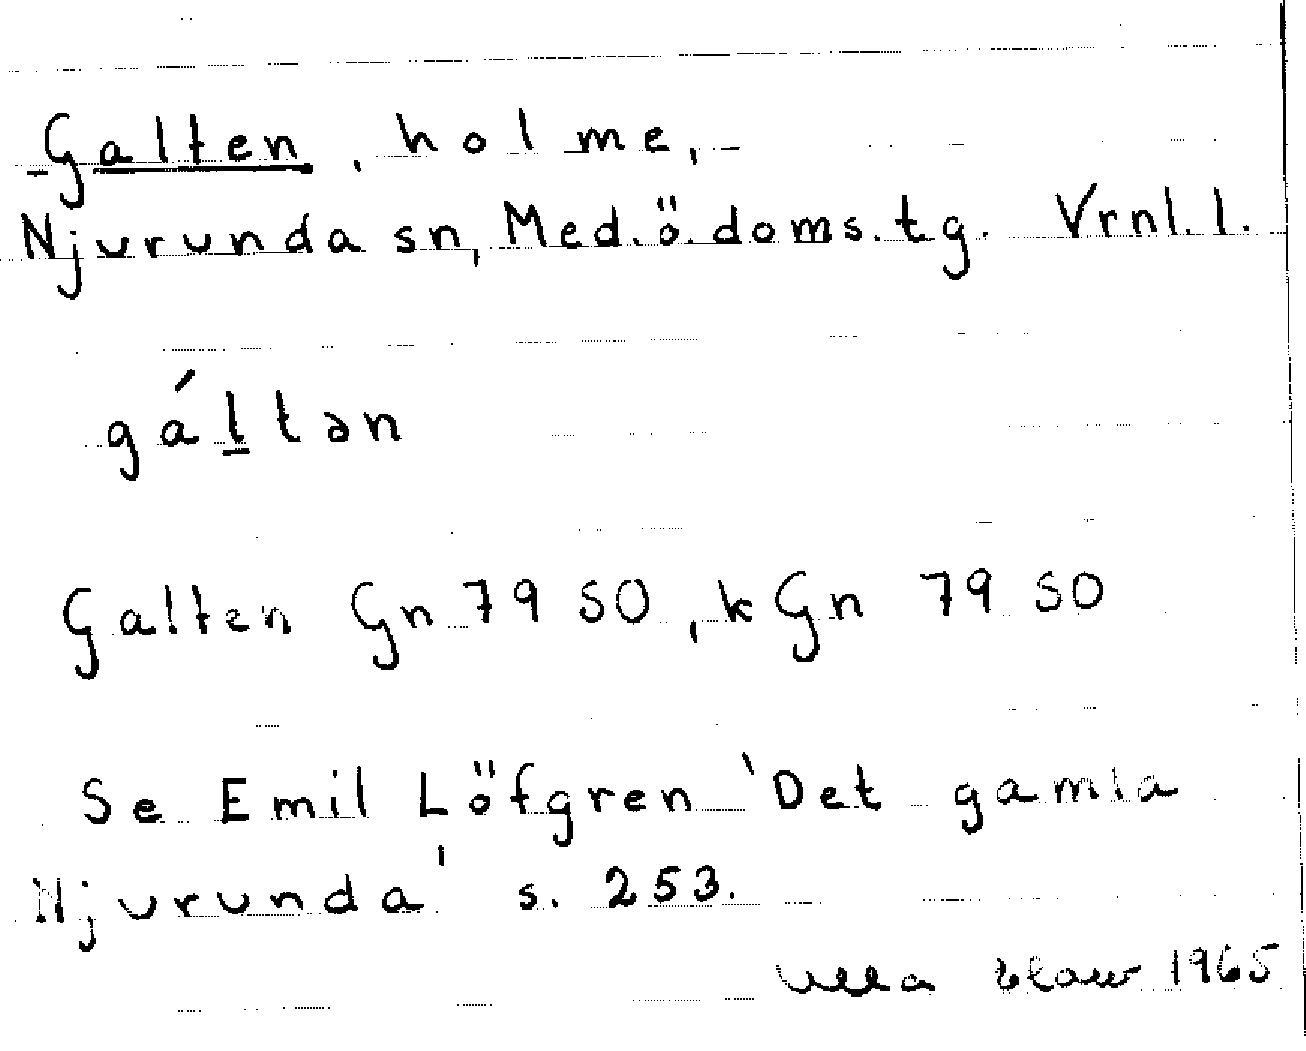 Galten, holme,
Njurunda sn, Med.ö.doms.tg. Vrnl.l.
gáltən
Galten Gn 79 SO, kGn 79 SO
Se Emil Löfgren 'Det gamla
Njurunda' s. 253.
Ulla 1965